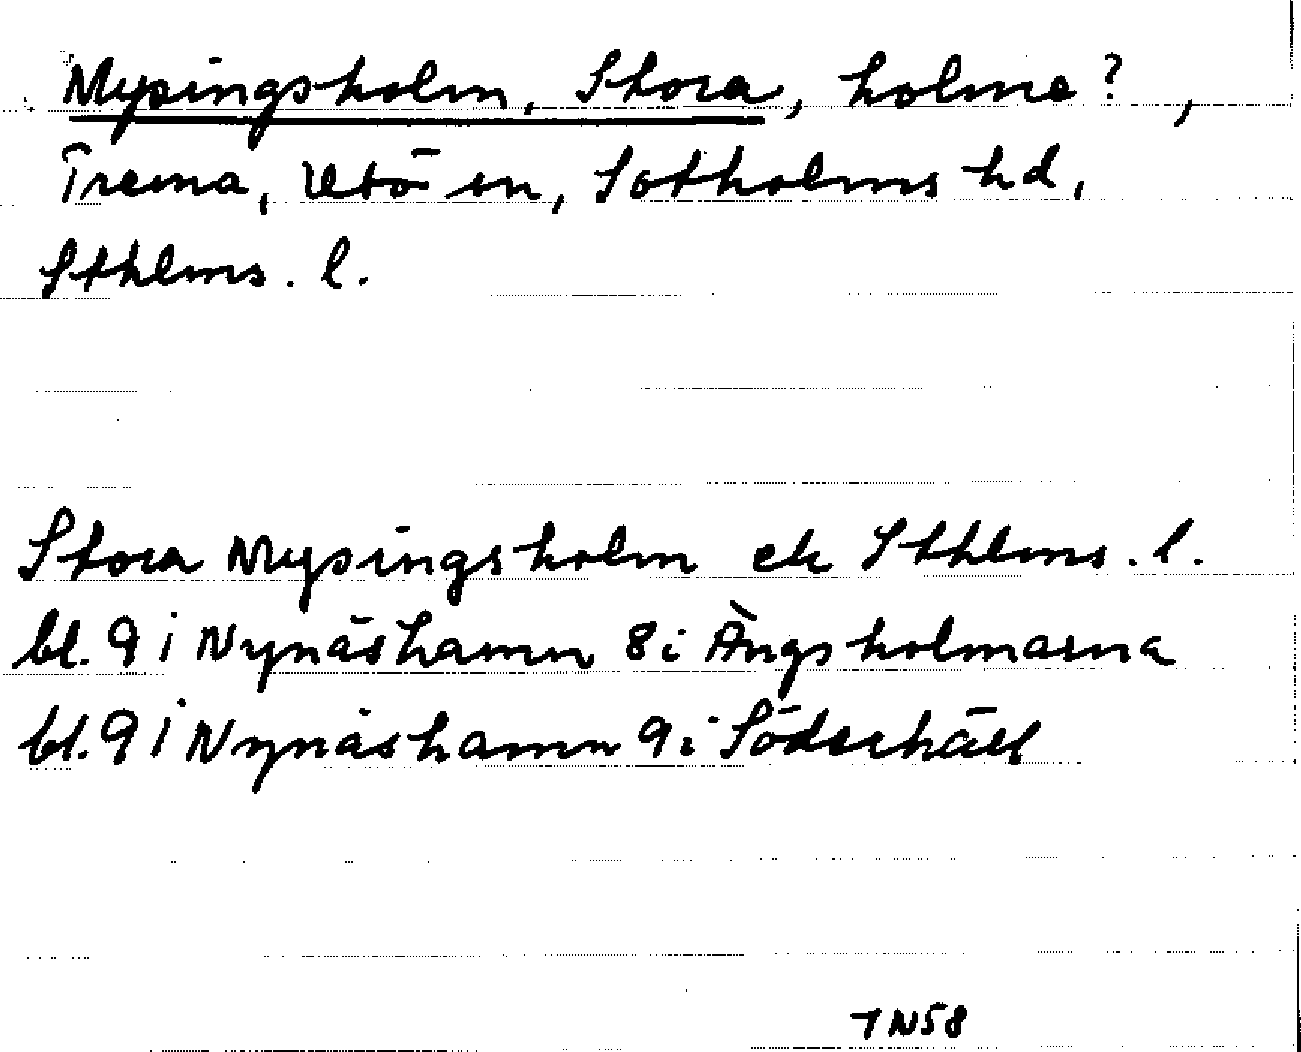 Mysingsholm, Stora, holme? ,
Trema, Utö sn, Sotholms hd,
Sthlms. l.
Stora Mysingsholm ek Sthlms. l.
bl. 9 i Nynäshamn 8 i Ängsholmarna
bl. 9 i Nynäshamn 9 i Söderhäll
TN58